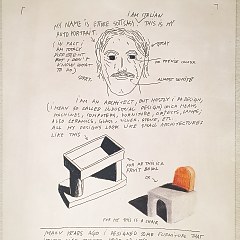 I AM ITALIAN
MY NAME IS ETTORE SOTTSASS THIS IS MY
AUTO PORTRAIT
(IN FACT I
AM TOTALLY
DIFFERENT
BUT I DON'T
KNOW WHAT
TO DO)
ALMOST WHITE
I AM AN ARCHITECT, BUT MOSTLY I DO DESIGN,
(I MEAN SO CALLED INDUSTRIAL DESIGN) WHICH MEANS
MACHINES, COMPUTERS, FURNITURE, OBJECTS, LAMPS,
ALSO CERAMICS, GLASS, SILVER, STONE, ETC.
ALL MY DESIGNS LOOK LIKE SMALL ARCHITECTURES
LIKE THIS
FOR ME THIS IS A
FRUIT BOWL
FOR ME THIS IS A CHAIR
MANY YEARS AGO I DESIGNED SOME FURNITURE THAT